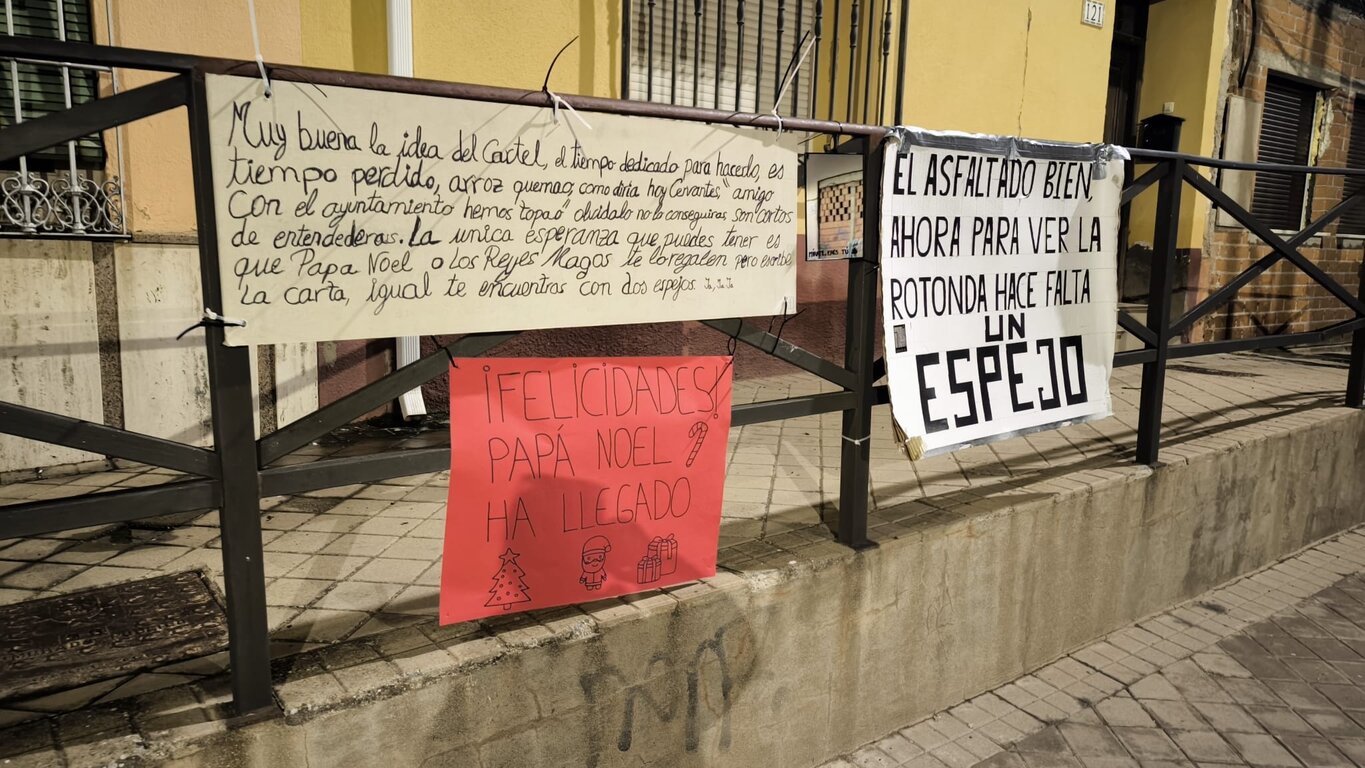 Muy buena la idea del Cartel, el tiempo dedicado para hacerlo, es
tiempo perdido, arroz quemao, como diria hoy Cervantes," amigo
Con el ayuntamiento hemos topao" olvidalo no lo conseguiras son cortos
de entendederas. La unica esperanza que puedes tener es
que Papa Noel o Los Reyes Magos te lo regalen pero escribe
La carta, igual te encuentras con dos espejos Ja, Ja, Ja
¡FELICIDADES!
PAPÁ NOEL
HA LLEGADO
EL ASFALTADO BIEN,
AHORA PARA VER LA
ROTONDA HACE FALTA
UN
ESPEJO
121